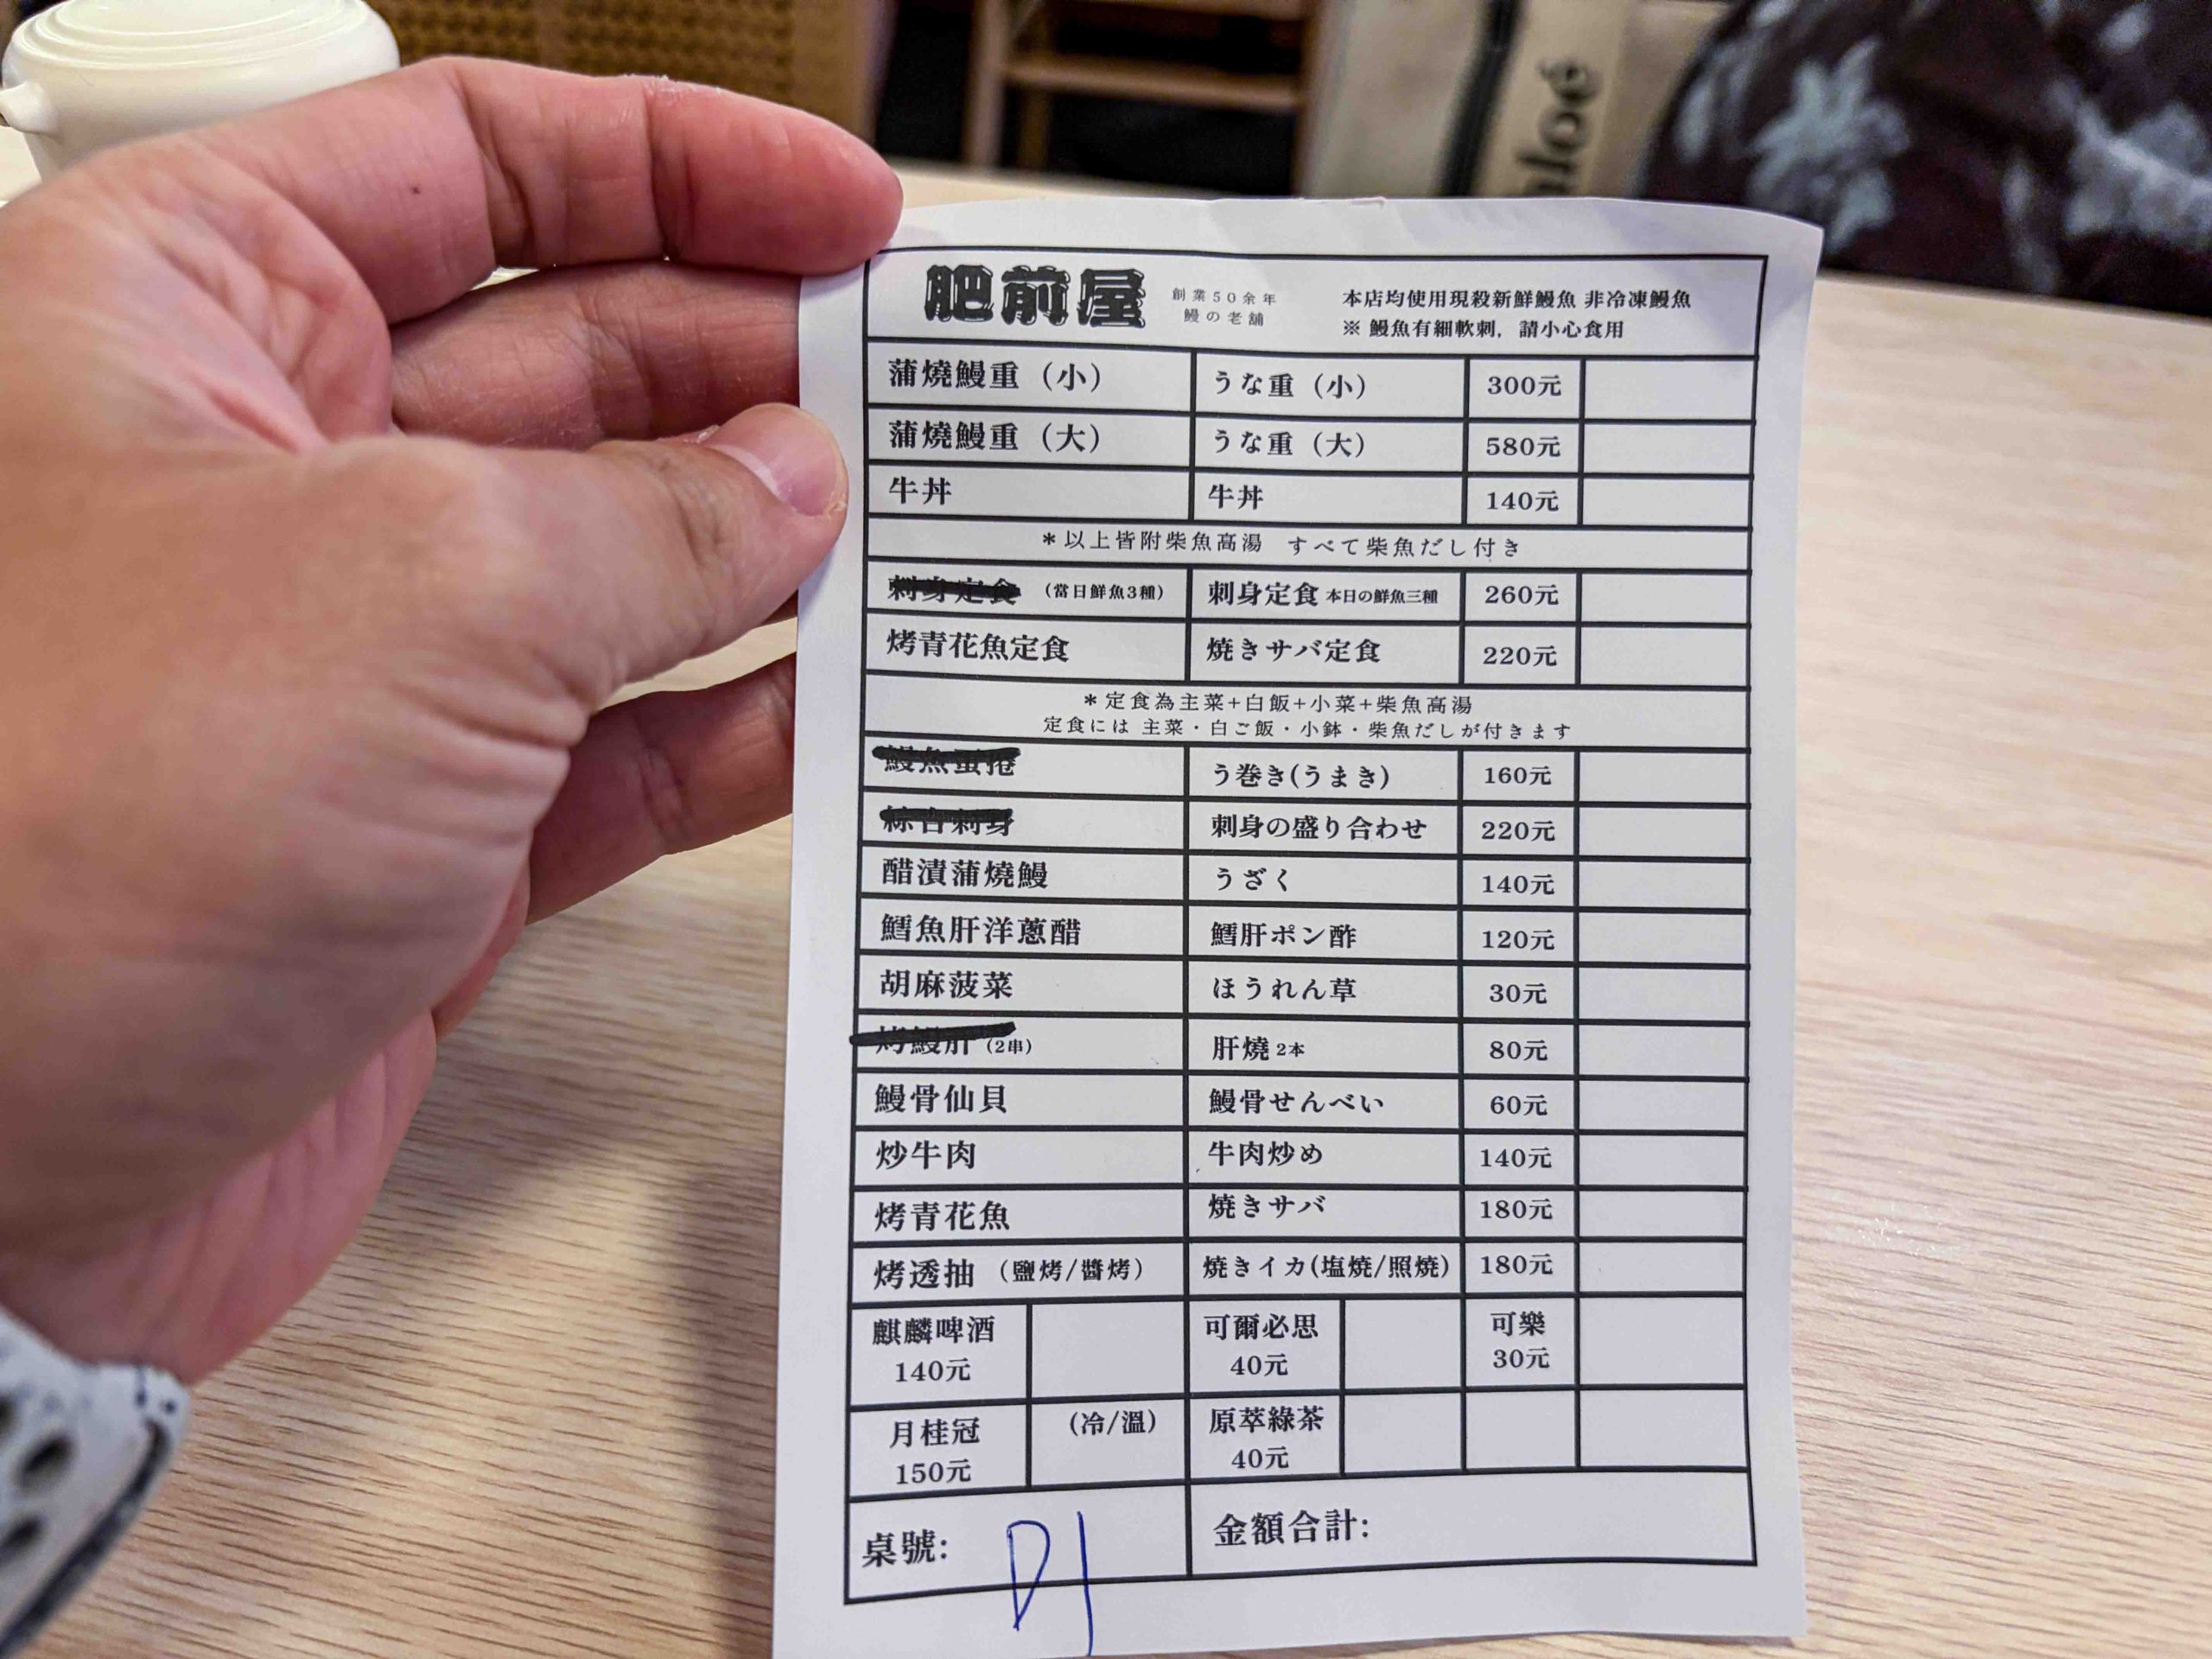 肥前屋
創業50余年
鰻の老舗
本店均使用現殺新鮮鰻魚 非冷凍鰻魚
※ 鰻魚有細軟刺, 請小心食用
蒲燒鰻重(小) うな重(小) 300元
蒲燒鰻重(大) うな重(大) 580元
牛丼 牛丼 140元
*以上皆附柴魚高湯 すべて柴魚だし付き
刺身定食 (當日鮮魚3種) 刺身定食 本日の鮮魚三種 260元
烤青花魚定食 焼きサバ定食 220元
*定食為主菜+白飯+小菜+柴魚高湯
定食には 主菜・白ご飯・小鉢・柴魚だしが付きます
鰻魚蛋捲 う巻き(うまき) 160元
綜合刺身 刺身の盛り合わせ 220元
醋漬蒲燒鰻 うざく 140元
鱈魚肝洋蔥醋 鱈肝ポン酢 120元
胡麻菠菜 ほうれん草 30元
烤鰻肝 (2串) 肝燒 2本 80元
鰻骨仙貝 鰻骨せんべい 60元
炒牛肉 牛肉炒め 140元
烤青花魚 焼きサバ 180元
烤透抽 (鹽烤/醬烤) 焼きイカ(塩焼/照燒) 180元
麒麟啤酒 可爾必思 可樂
140元 40元 30元
月桂冠 (冷/溫) 原萃綠茶
150元 40元
桌號: D1 金額合計: